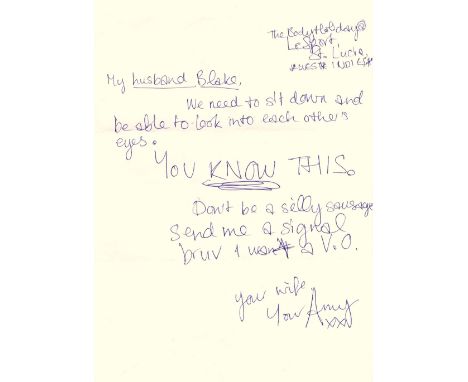 The BodyHoliday@
LeSport,
St. Lucia,
WEST INDIES
My husband Blake,
We need to sit down and
be able to look into each others
eyes.
YOU KNOW THIS.
Don't be a silly sausage
send me a signal
bruv I want a V.O.
you wife.
Your Amy
xxx